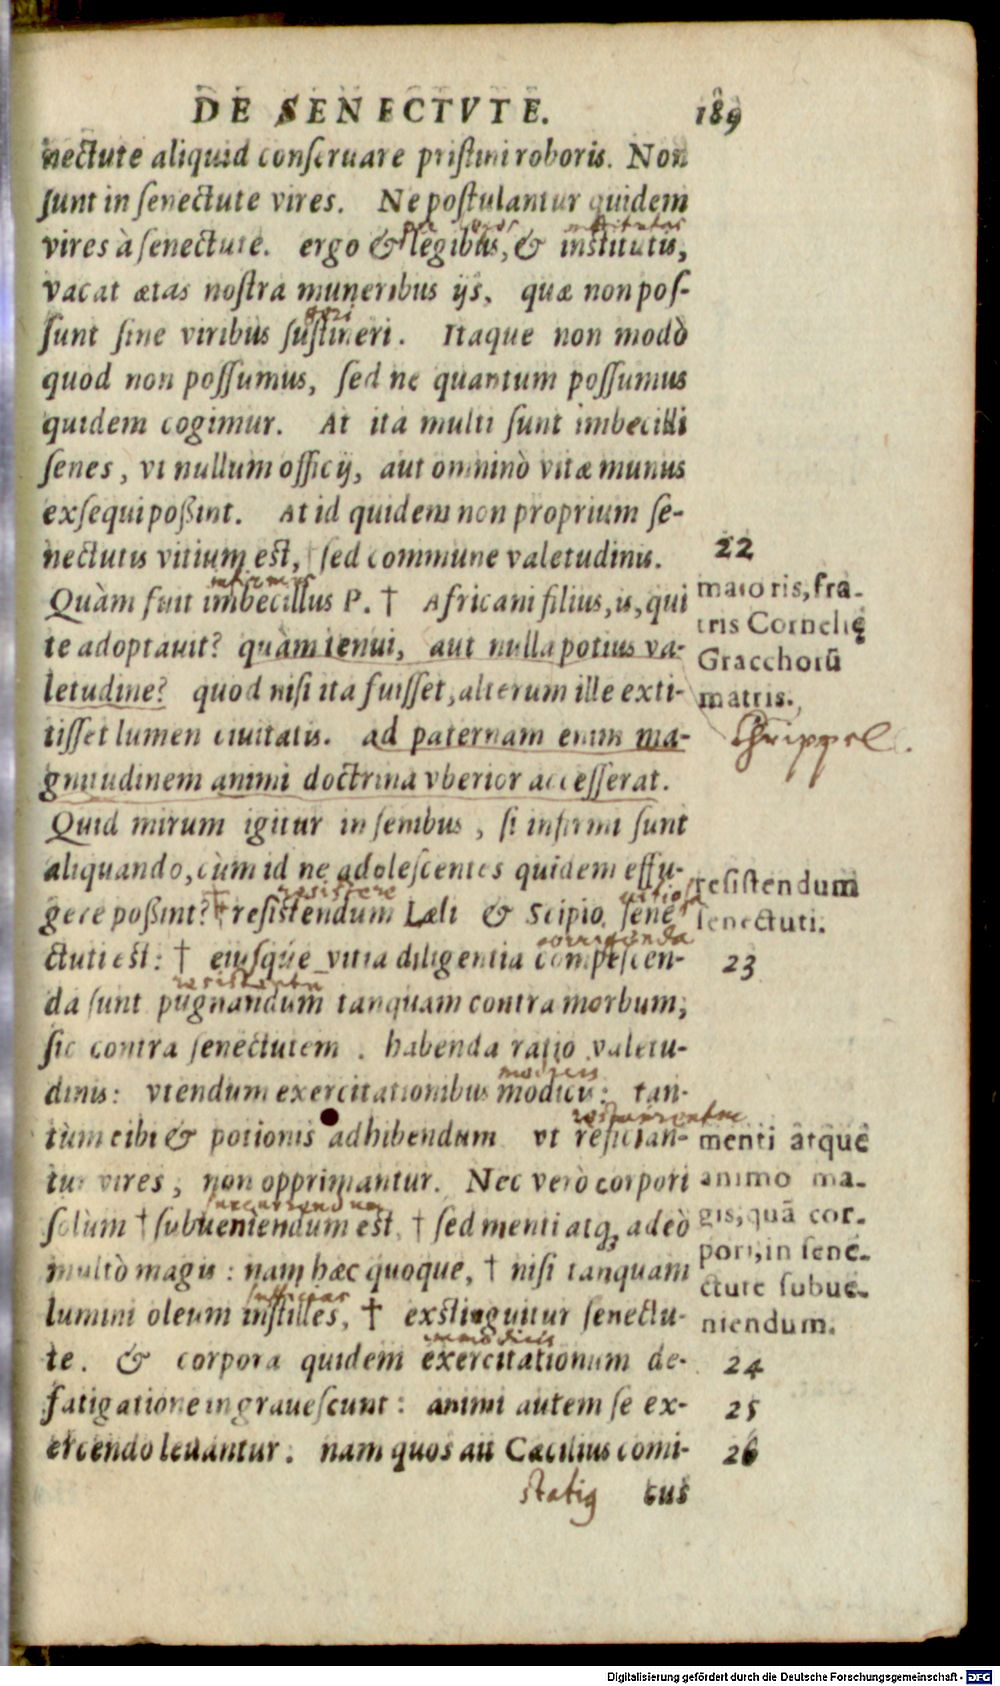 DE SENECTVTE. 189
nectute aliquid conseruare pristini roboris. Non
sunt in senectute vires. Ne postulantur quidem
vires à senectute. ergo & legibus, & institutis,
vacat ætas nostra muneribus ijs, quæ non pos-
sunt sine viribus sustineri. Itaque non modò
quod non possumus, sed ne quantum possumus
quidem cogimur. At ita multi sunt imbecilli
senes, vt nullum officij, aut omninò vitæ munus
exsequi poßint. At id quidem non proprium se-
nectutis vitium est, sed commune valetudinis.
22
infirmus
Quàm fuit imbecillus P. † Africani filius, is, qui
maioris, fra-
te adoptauit? quàm tenui, aut nulla potius va-
tris Cornelię
Gracchorū
letudine? quod nisi ita fuisset, alterum ille exti-
matris.
tisset lumen ciuitatis. ad paternam enim ma-
gnitudinem animi doctrina vberior accesserat.
Quid mirum igitur in senibus, si infirmi sunt
aliquando, cùm id ne adolescentes quidem effu-
resistendum
resistere vitiosa
gere poßint? † resistendum Læli & Scipio, sene
senectuti.
corrigenda
ctuti est: † eiusque vitia diligentia compescen-
23
da sunt pugnandum tanquam contra morbum,
sic contra senectutem. habenda ratio valetu-
dinis: vtendum exercitationibus modicis: tan-
tùm cibi & potionis adhibendum vt refician-
menti atque
tur vires, non opprimantur. Nec verò corpori
animo ma-
succurrendum
solùm † subueniendum est, † sed menti atq; adeò
gis, quā cor-
multò magis: nam hæc quoque, † nisi tanquam
pori, in sene-
ctute subue-
lumini oleum instilles, † exstinguitur senectu-
niendum.
te. & corpora quidem exercitationum de-
24
fatigatione ingrauescunt: animi autem se ex-
25
ercendo leuantur. nam quos ait Cæcilius comi-
26
cus
Digitalisierung gefördert durch die Deutsche Forschungsgemeinschaft - DFG